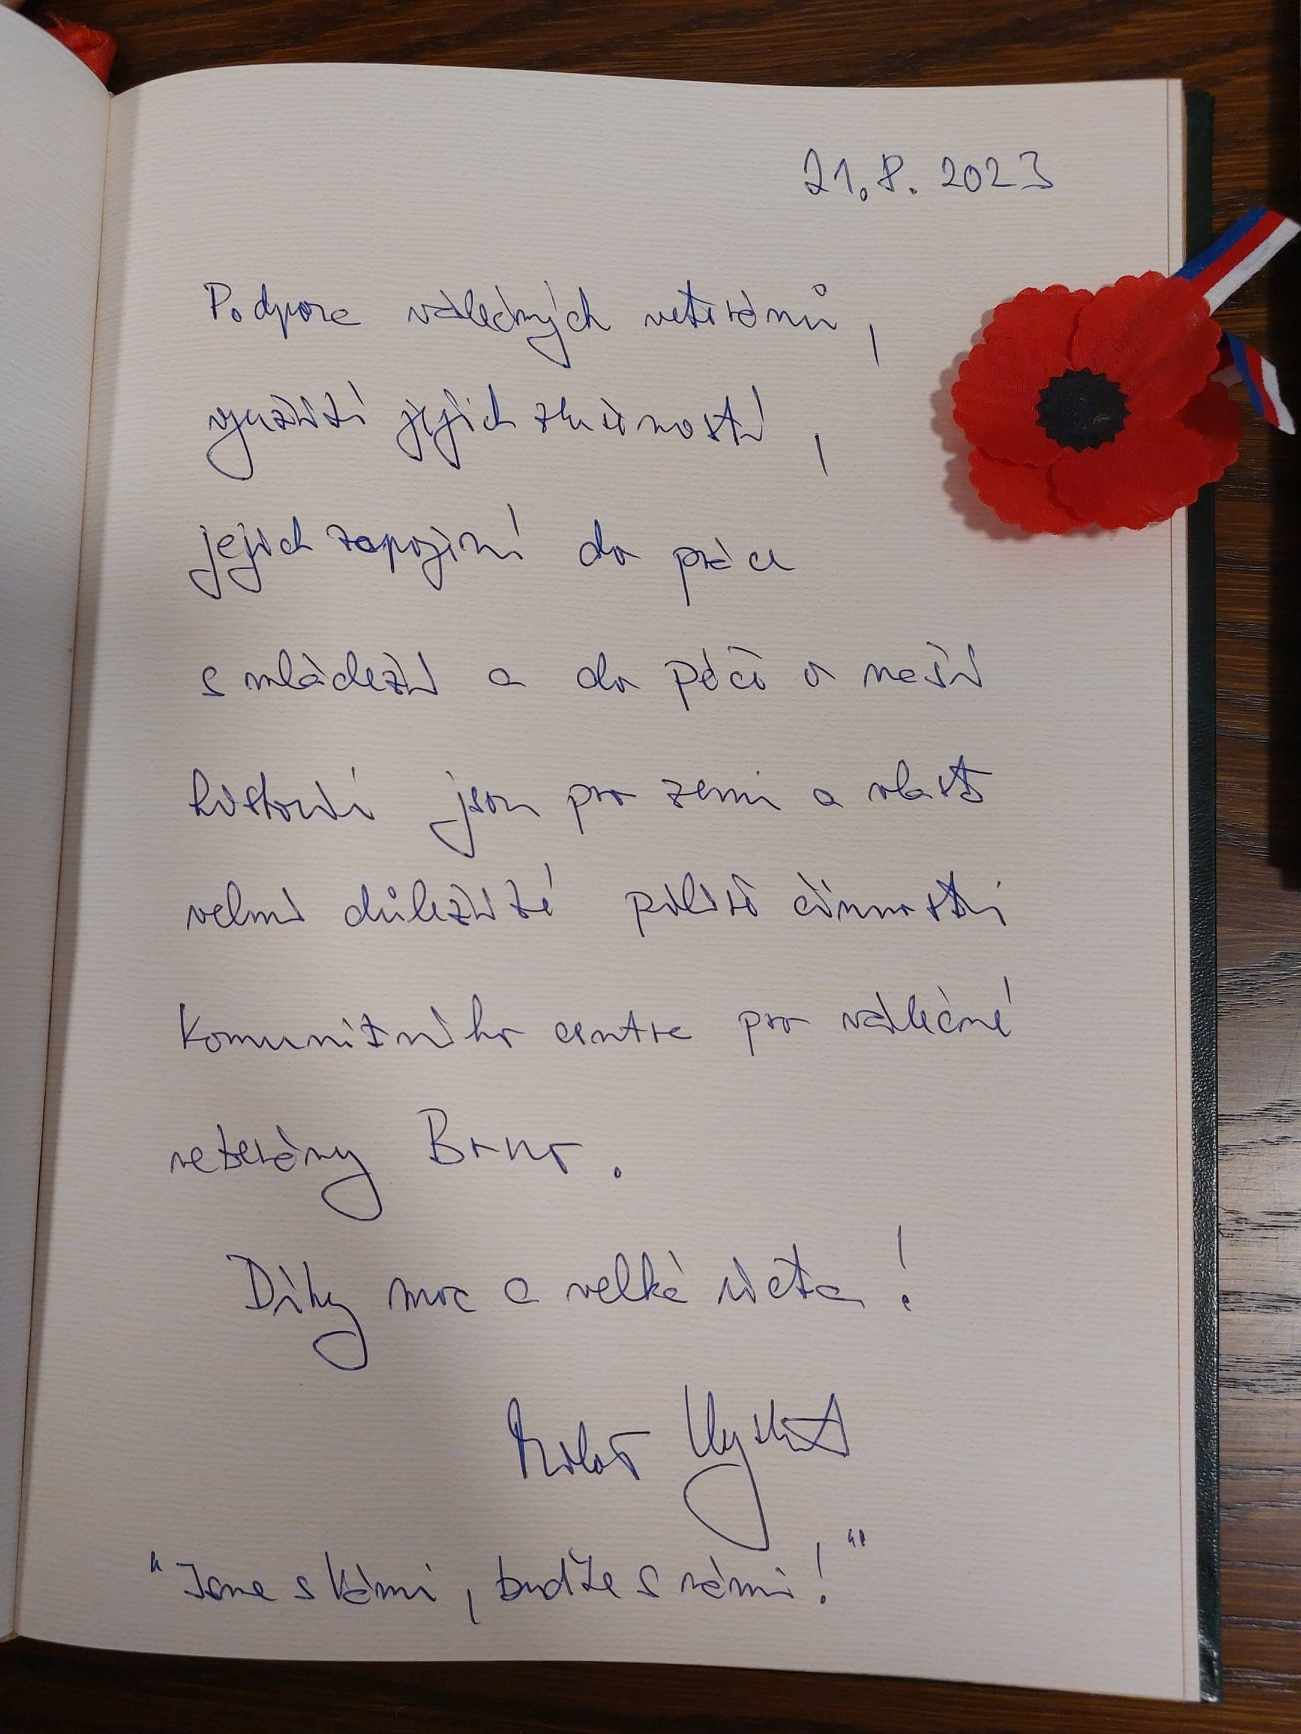 21. 8. 2023
Podpora válečných veteránů,
využití jejich zkušeností,
jejich zapojení do práce
s mládeží a do péče o naši
historii jsou pro zemi a vlast
velmi důležité
Komunitního centra pro válečné
veterány Brno.
Díky moc a velká úcta!
Miloš Vystrčil
"Jsme s Vámi, buďte s námi!"